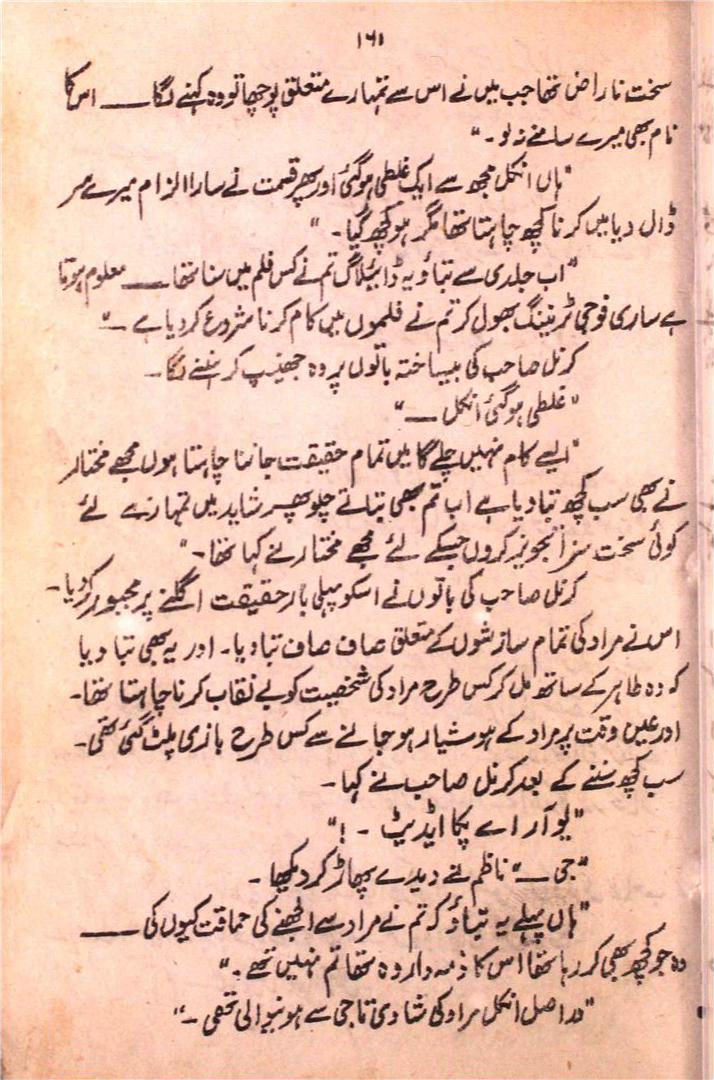 ۱۶۱
سخت ناراض تھا جب میں نے اس سے تمہارے متعلق پوچھا تو وہ کہنے لگا ـــــ اس کا
نام بھی میرے سامنے نہ لو ۔"
"ہاں انکل مجھ سے ایک غلطی ہو گئی اور پھر قسمت نے سارا الزام میرے سر
ڈال دیا میں کرنا کچھ چاہتا تھا مگر ہو کچھ گیا ۔"
"اب جلدی سے بتاؤ یہ ڈائیلاگ تم نے کس فلم میں سنا تھا ـــــ معلوم ہوتا
ہے ساری فوجی ٹریننگ بھول کر تم نے فلموں میں کام کرنا شروع کر دیا ہے ۔"
کرنل صاحب کی بیساختہ باتوں پر وہ جھینپ کر ہنسنے لگا ۔
"غلطی ہو گئی انکل ـــــ"
"ایسے کام نہیں چلے گا میں تمام حقیقت جاننا چاہتا ہوں مجھے مختار
نے بھی سب کچھ بتا دیا ہے اب تم بھی بتاتے چلو پھر شاید میں تمہارے لئے
کوئی سخت سزا تجویز کروں جسکے لئے مجھے مختار نے کہا تھا ۔"
کرنل صاحب کی باتوں نے اسکو پہلی بار حقیقت اگلنے پر مجبور کر دیا ۔
اس نے مراد کی تمام سازشوں کے متعلق صاف صاف بتا دیا ۔ اور یہ بھی بتا دیا
کہ وہ طاہر کے ساتھ مل کر کس طرح مراد کی شخصیت کو بے نقاب کرنا چاہتا تھا ۔
اور عین وقت پر مراد کے ہوشیار ہو جانے سے کس طرح بازی پلٹ گئی تھی ۔
سب کچھ سننے کے بعد کرنل صاحب نے کہا ۔
"یو آر اے پکا ایڈیٹ ۔ !"
"جی ـــ" ناظم نے دیدے پھاڑ کر دیکھا ۔
"ہاں پہلے یہ بتاؤ کہ تم نے مراد سے الجھنے کی حماقت کیوں کی ـــــ
وہ جو کچھ بھی کر رہا تھا اس کا ذمہ دار وہ تھا تم نہیں تھے ۔"
"دراصل انکل مراد کی شادی تاجی سے ہونیوالی تھی ۔"